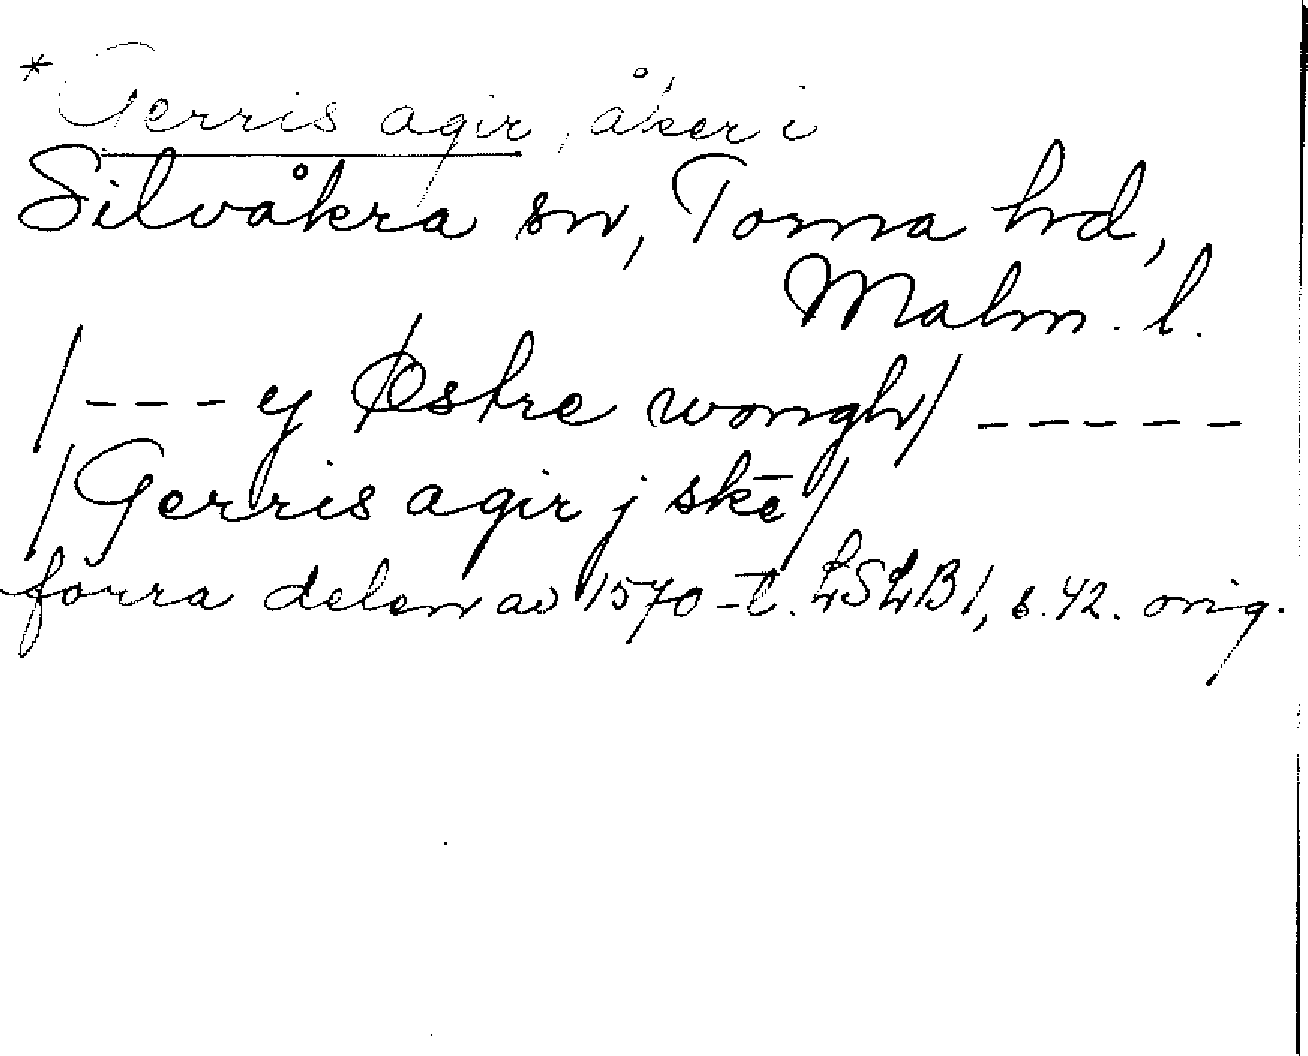 *Gerris agir, åker i
Silvåkra sn, Torna hd,
Malm. l.
/--- y Østre wongh/ -----
/Gerris agir j skē/
förra delen av 1570-t. LSLB1, s.42. orig.